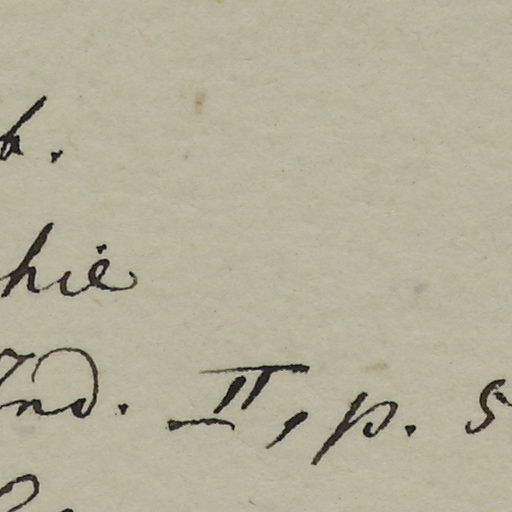 b.
hie
Ind. II, p. 5